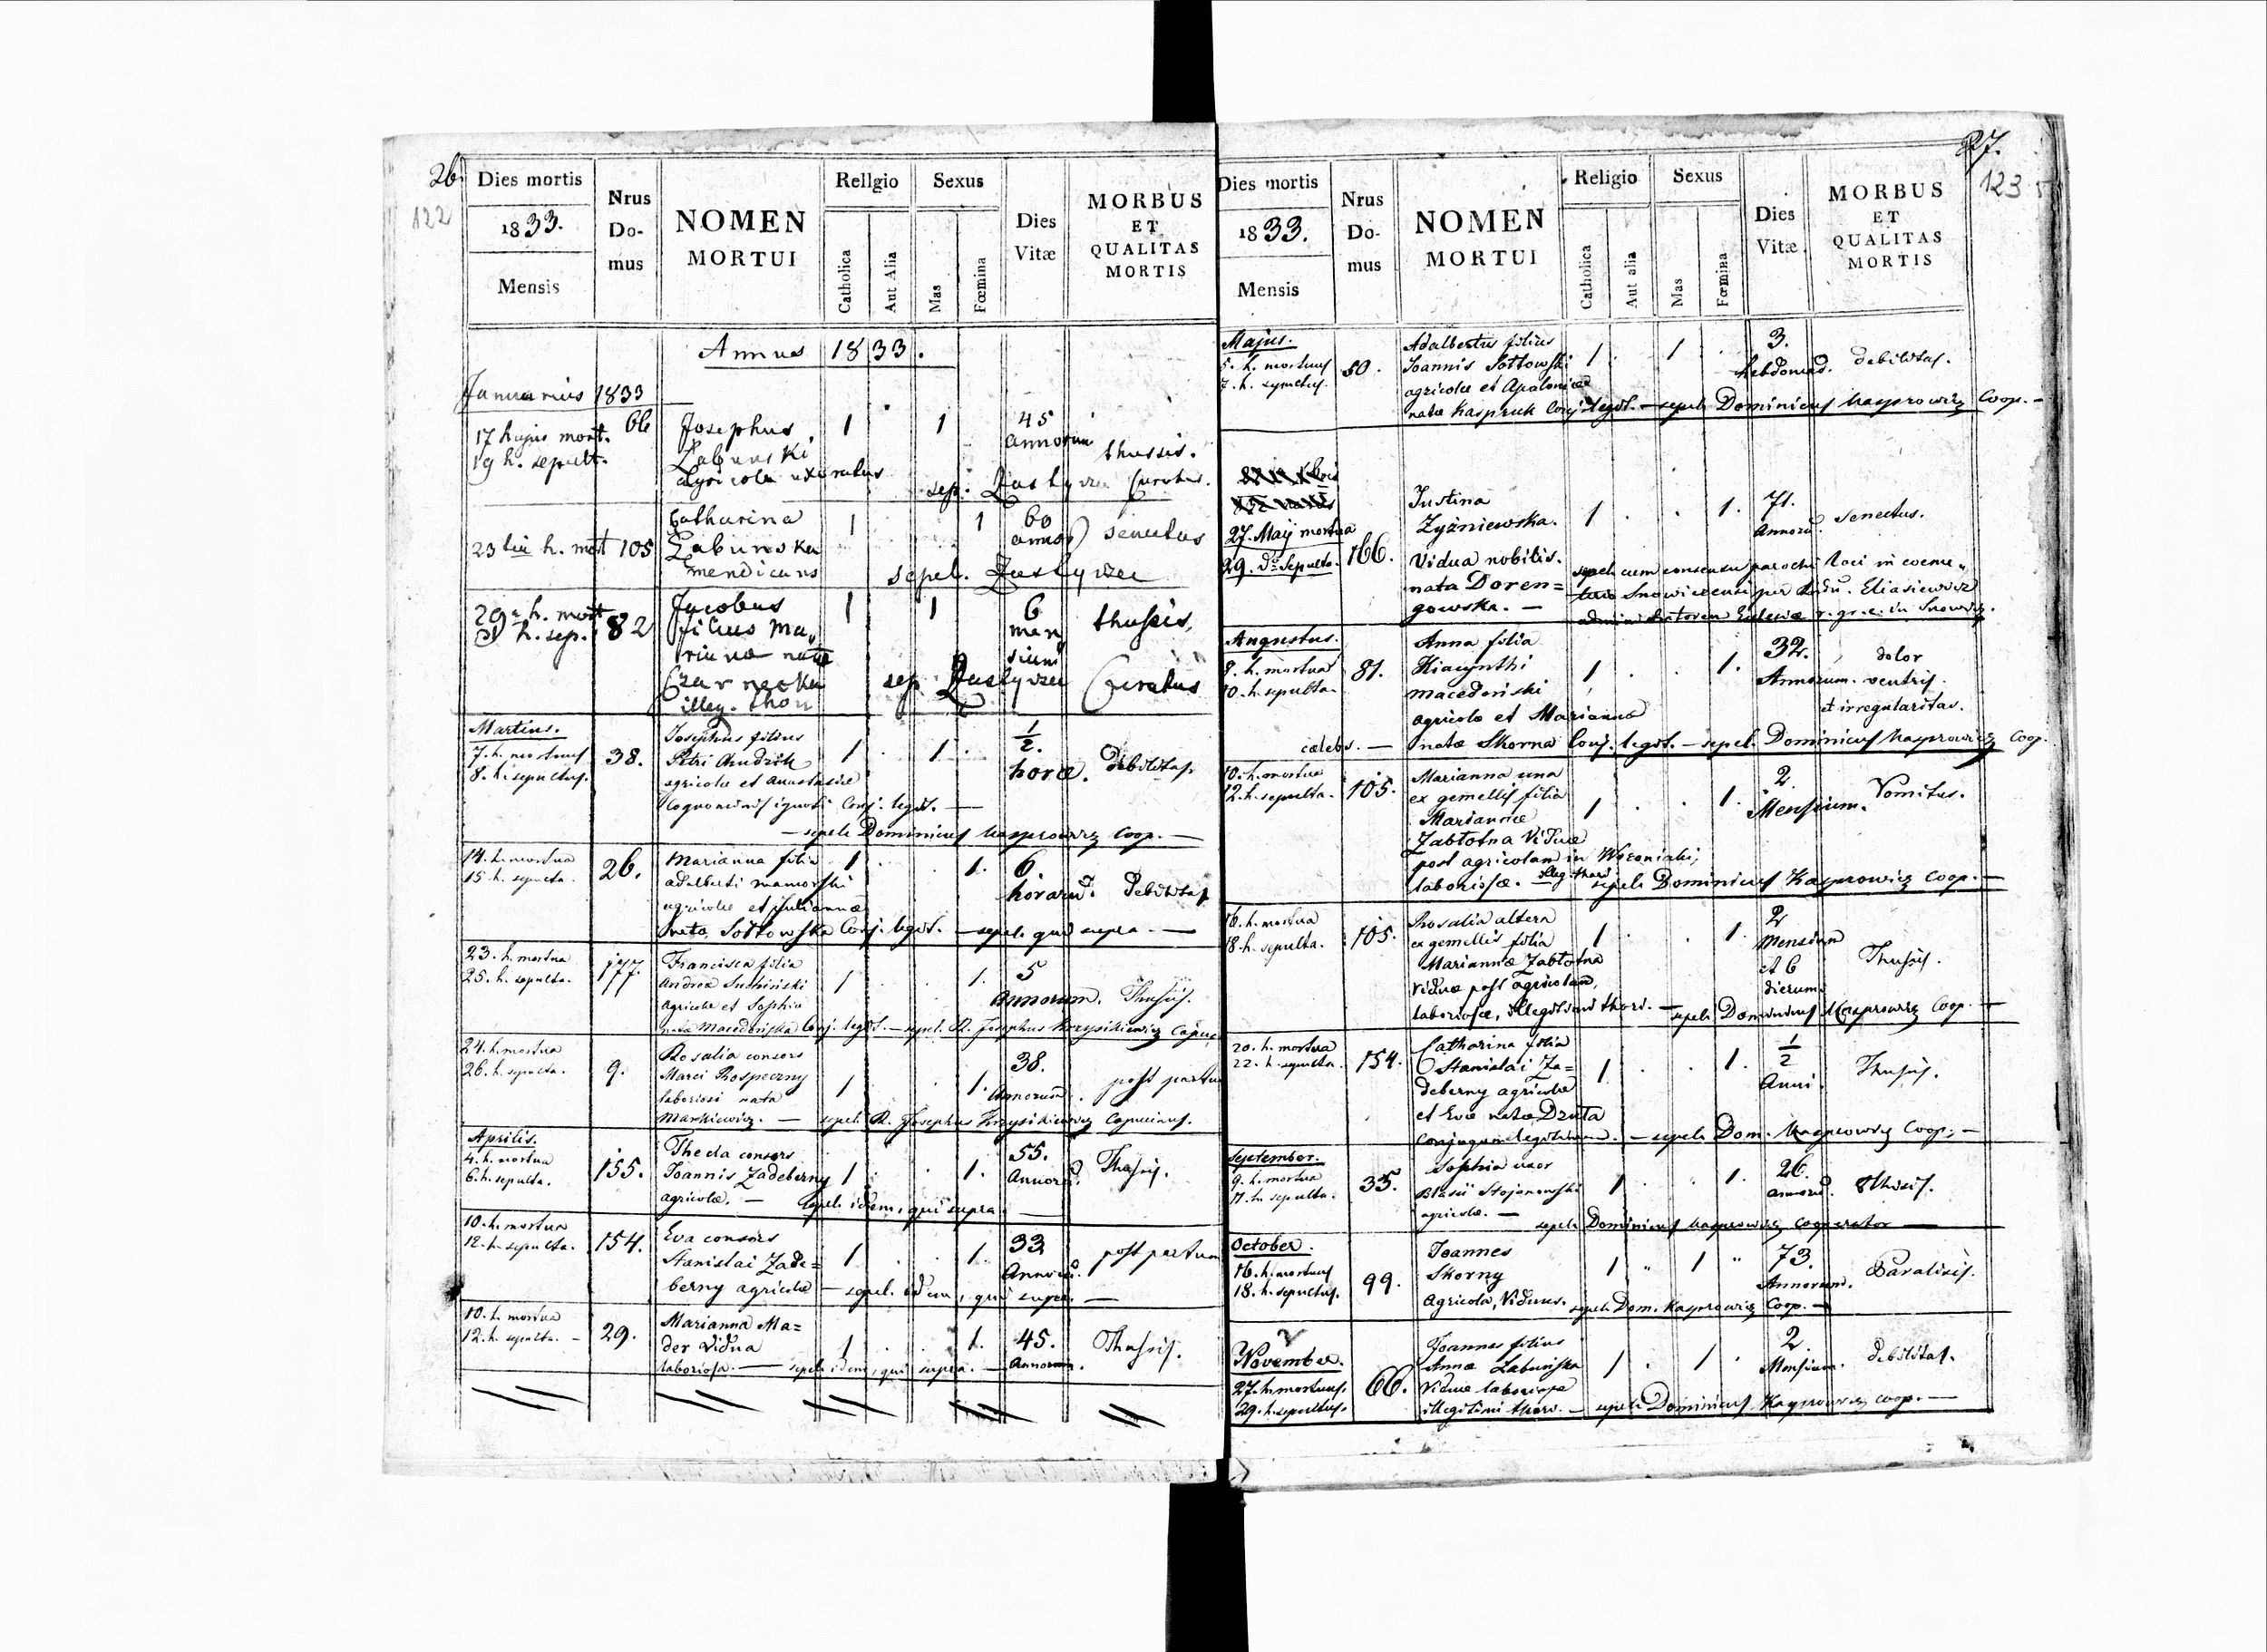 26
122
Dies mortis
1833.
Mensis
Nrus
Do-
mus
NOMEN
MORTUI
Religio
Catholica
Aut Alia
Sexus
Mas
Fœmina
Dies
Vitæ
MORBUS
ET
QUALITAS
MORTIS
Annus 1833.
Januarius 1833
17 hujus mort. 66 Josephus 1 1 45
19 h. sepult. Łabunski annorum thussis.
agricola uxoratus
sep. Zastyrzec Curatus.
Catharina 1 1 60
23 h. mort 105 Łabunska senectus
mendicans sepel. Zastyrzec
29 h. mort 82 Jacobus 1 1 6
31 h. sep. filius Ma- men thussis,
riannæ natæ sium
Czarnecka sep. Zastyrzec Curatus
illeg. thori
Martius.
7. h. mortuus 38. Josephus filius 1. 1. ½.
8. h. sepultus. Petri Andzik horæ. Debilitas.
agricolæ et Anastasiæ
Cognominis ignoti Conj. legit. —
— sepel. Dominicus Kasprowicz Coop. —
14. h. mortua 26. Marianna filia 1. 1. 6.
15. h. sepulta. Adalberti Mamorski horarum. Debilitas
agricolæ et Juliannæ
nata Sołtowska Conj. legit. — sepel. qui supra. —
23. h. mortua 177. Francisca filia
25. h. sepulta. Andreæ Sumiński 1. 1. 5
agricolæ et Sophia Annorum. Thussis.
nata Macedońska Conj. legit. — sepel. R. Josephus Krzysikiewicz Capuc.
24. h. mortua 9. Rosalia consors 38.
26. h. sepulta. Marci Rospeczny 1 1. Annorum. post partum
laboriosi nata
Markiewicz. — sepel. R. Josephus Krzysikiewicz Capucinus.
Aprilis.
4. h. mortua 155. Theda consors 55.
6. h. sepulta. Joannis Zadeberny 1. 1. Annorum. Thussis.
agricolæ. — sepel. idem, qui supra —
10. h. mortua 154. Eva consors 33
12. h. sepulta. Stanislai Zade= 1. 1. Annorum. post partum
berny agricolæ — sepel. idem, qui supra. —
10. h. mortua 29. Marianna Ma= 45.
12. h. sepulta. — der Vidua 1. 1. Annorum. Thussis.
laboriosa. — sepel. idem, qui supra. —
27.
123
Dies mortis
1833.
Mensis
Nrus
Do-
mus
NOMEN
MORTUI
Religio
Catholica
Aut alia
Sexus
Mas
Fœmina
Dies
Vitæ
MORBUS
ET
QUALITAS
MORTIS
Majus.
5. h. mortuus 50. Adalbertus filius 3.
7. h. sepultus. Joannis Sołtowski 1. 1 hebdomad. debilitas.
agricolæ et Apaloniæ
natæ Kaspruk Conj. legit. — sepel. Dominicus Kasprowicz Coop. —
27. Maij mortua 166. Justina 71.
29. do sepulta. Zyżniewska. 1. 1. Annorum. Senectus.
Vidua nobilis. sepel. cum consensu parochi loci in coeme-
nata Doren= terio Snowicensi per Eliasiewicz
gowska. — administratorem Ecclesiæ r. gr. c. in Snowicz.
Augustus.
8. h. mortua 81. Anna filia 32. dolor
10. h. sepulta. Hiacynthi 1. 1. Annorum. ventris.
Macedoński et irregularitas.
agricolæ et Marianna
cælebs. — natæ Skorna Conj. legit. — sepel. Dominicus Kasprowicz Coop.
10. h. mortua 105. Marianna una 2.
12. h. sepulta. ex gemellis filia 1. 1. Mensium. Vomitus.
Mariannæ
Zabłotna Viduæ
post agricolam in Wozoniaki,
laboriosæ. illeg. thori sepel. Dominicus Kasprowicz Coop. —
16. h. mortua 105. Rosalia altera 2
18. h. sepulta. ex gemellis filia 1. 1. Mensium
Mariannæ Zabłotna et 6 Thussis.
viduæ post agricolam, dierum.
laboriosæ, illegitimi thori. — sepel. Dominicus Kasprowicz Coop. —
20. h. mortua 154. Catharina filia ½
22. h. sepulta. Stanislai Za= 1. 1. Anni. Thussis.
deberny agricolæ
et Evæ natæ Dzuta
conjugum legitimorum. — sepel. Dom. Kasprowicz Coop. —
September.
9. h. mortua 35. Sophia uxor 26.
11. h. sepulta. Blasii Stojanowski 1. 1. annorum. Thisis.
agricolæ. — sepel. Dominicus Kasprowicz cooperator —
October.
16. h. mortuus 99. Joannes 73.
18. h. sepultus. Skorny 1 " 1 " Annorum. Paralisis.
Agricola, Viduus. sepel. Dom. Kasprowicz Coop. —
November.
27. h. mortuus. 66. Joannes filius 2.
29. h. sepultus. Annæ Łabuńska 1. 1. Mensium. debilitas.
Viduæ laboriosæ
illegitimi thoro. — sepel. Dominicus Kasprowicz coop. —